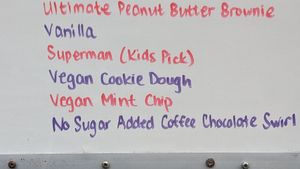 Ultimate Peanut Butter Brownie
Vanilla
Superman (Kids Pick)
Vegan Cookie Dough
Vegan Mint Chip
No Sugar Added Coffee Chocolate Swirl